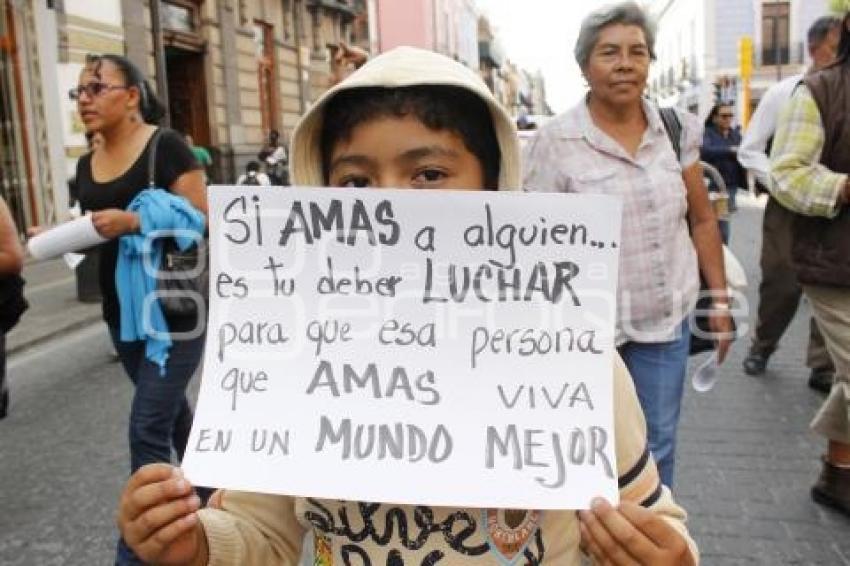 Si AMAS a alguien...
es tu deber LUCHAR
para que esa persona
que AMAS VIVA
EN UN MUNDO MEJOR
enfoque